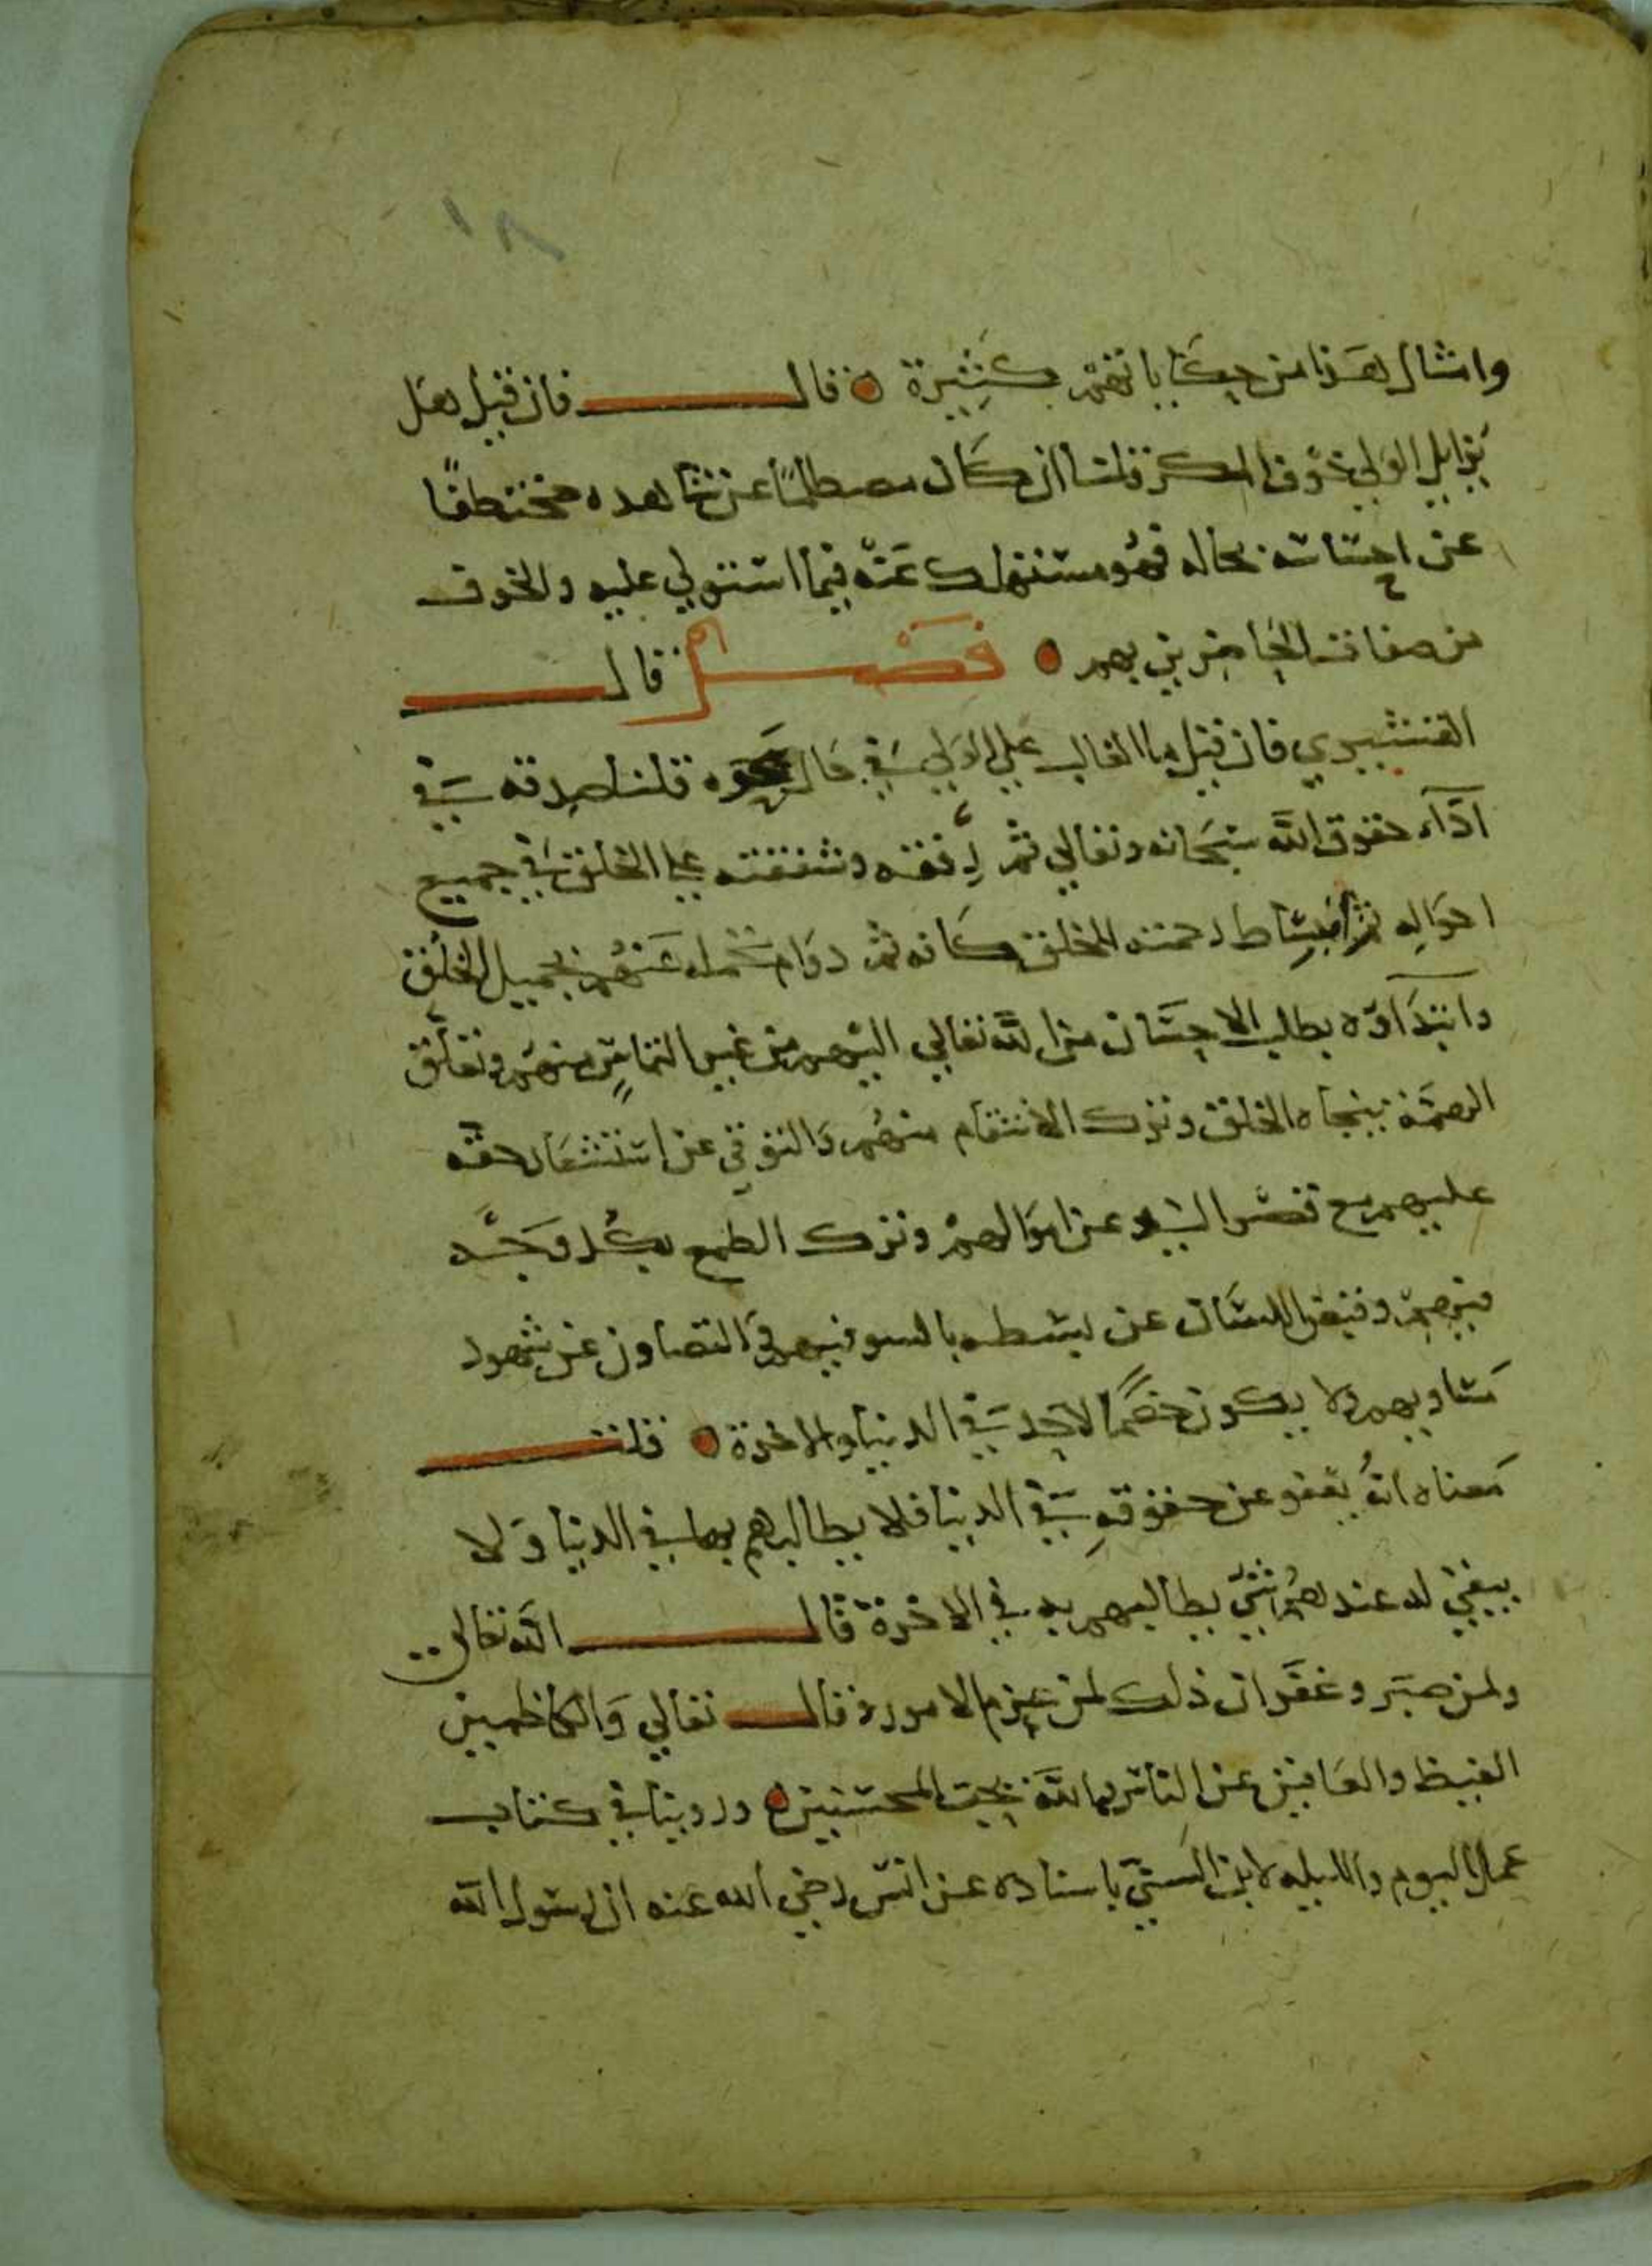 ١٨
وامثال هذا من حكاياتهم كثيرة ٥ قال فان قيل هل
يزايل الولي خوف المكر قلنا ان كان مصطلمًا عن شاهده مختطفًا
عن احساسه بحاله فهو مستهلك عنه فيما استولي عليه والخوف
من صفات الحاضرين بهم ٥ فصل قال
القشيري فان قيل ما الغالب علي الولي في حال صحوه قلنا صدقه في
آدآء حقوق الله سبحانه وتعالي ثم رأفته وشفقته علي الخلق في جميع
احواله ثم انبساط رحمته للخلق كافه ثم دوام تحمله عنهم بجميل الخلق
وابتداؤه بطلب الاحسان من الله تعالي اليهم من غير التماس منهم وتعلق
الهمة بنجاه الخلق وترك الانتقام منهم والتوقي عن استشعار حقه
عليهم مع قصر اليد عن اموالهم وترك الطمع بكل وجه
فيهم وقبض اللسان عن بسطه بالسو فيهم والتصاون عن شهود
مساويهم ولا يكون خصمًا لاحد في الدنيا والاخرة ٥ قلت
معناه انه يعفو عن حقوقه في الدنيا فلا يطالبهم بها في الدنيا ولا
يبقي له عندهم شيء يطالبهم به في الاخرة قال الله تعالى
ولمن صبر وغفر ان ذلك لمن عزم الامور ٥ قال تعالي والكاظمين
الغيظ والعافين عن الناس والله يحب المحسنين ٥ وروينا في كتاب
عمل اليوم والليله لابن السني باسناده عن انس رضي الله عنه ان رسول الله